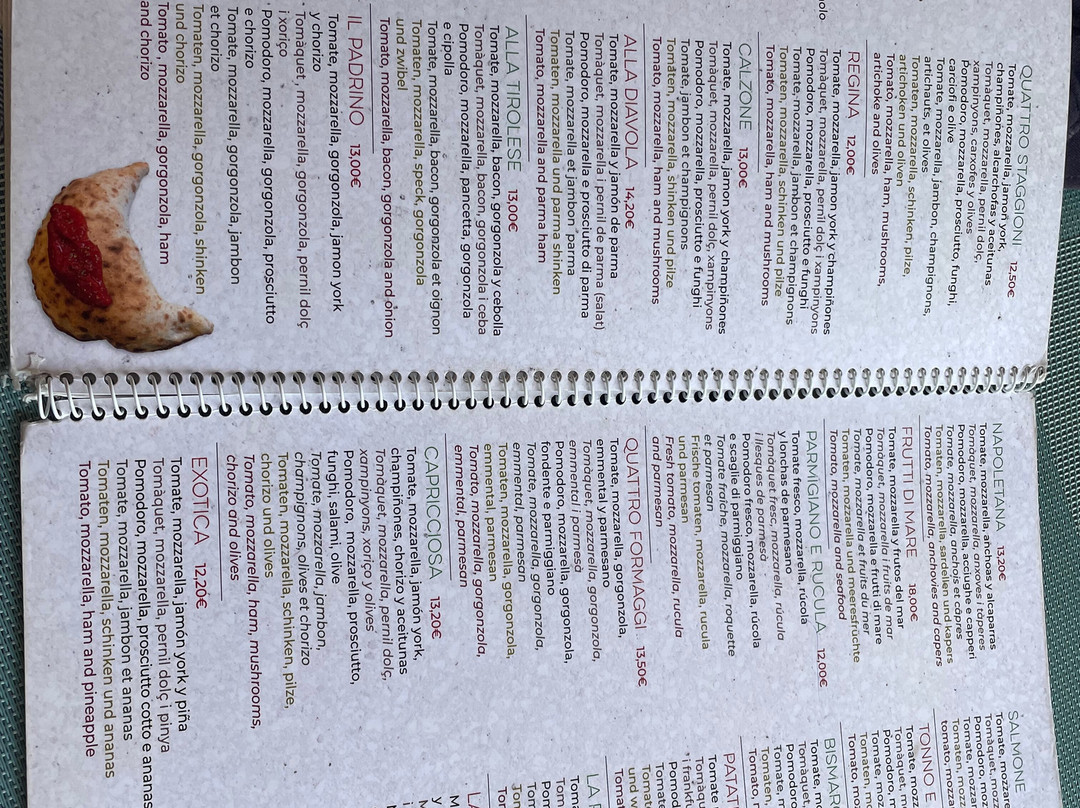 QUATTRO STAGGIONI 12,50€
Tomate, mozzarella, jamon york,
champiñones, alcarchofas y aceitunas
Tomàquet, mozzarella, pernil dolç,
xampinyons, carxofes y olives
Pomodoro, mozzarella, prosciutto, funghi,
carciofi e olive
Tomate, mozzarella, jambon, champignons,
artichauts, et olives
Tomaten, mozzarella, schinken, pilze,
artichoken und oliven
Tomato, mozzarella, ham, mushrooms,
artichoke and olives
REGINA 12,00€
Tomate, mozzarella, jamon york y champiñones
Tomàquet, mozzarella, pernil dolç i xampinyons
Pomodoro, mozzarella, prosciutto e funghi
Tomate, mozzarella, jambon et champignons
Tomaten, mozzarella, schinken und pilze
Tomato, mozzarella, ham and mushrooms
CALZONE 13,00€
Tomate, mozzarella, jamon york y champiñones
Tomàquet, mozzarella, pernil dolç, xampinyons
Pomodoro, mozzarella, prosciutto e funghi
Tomate, jambon et champignons
Tomaten, mozzarella, shinken und pilze
Tomato, mozzarella, ham and mushrooms
ALLA DIAVOLA 14,20€
Tomate, mozzarella y jamón de parma
Tomàquet, mozzarella i pernil de parma (salat)
Pomodoro, mozzarella e prosciutto di parma
Tomate, mozzarella et jambon parma
Tomaten, mozzarella und parma shinken
Tomato, mozzarella and parma ham
ALLA TIROLESE 13,00€
Tomate, mozzarella, bacon, gorgonzola y cebolla
Tomàquet, mozzarella, bacon, gorgonzola i ceba
Pomodoro, mozzarella, pancetta, gorgonzola
e cipolla
Tomate, mozzarella, bacon, gorgonzola et oignon
Tomaten, mozzarella, speck, gorgonzola
und zwibel
Tomato, mozzarella, bacon, gorgonzola and onion
IL PADRINO 13,00€
Tomate, mozzarella, gorgonzola, jamon york
y chorizo
Tomàquet, mozzarella, gorgonzola, pernil dolç
i xoriço
Pomodoro, mozzarella, gorgonzola, prosciutto
e chorizo
Tomate, mozzarella, gorgonzola, jambon
et chorizo
Tomaten, mozzarella, gorgonzola, shinken
und chorizo
Tomato, mozzarella, gorgonzola, ham
and chorizo
NAPOLETANA 13,20€
Tomate, mozzarella, anchoas y alcaparras
Tomàquet, mozzarella, anxoves i tàperes
Pomodoro, mozzarella, acciughe e capperi
Tomate, mozzarella, anchois et câpres
Tomaten, mozzarella, sardellen und kapers
Tomato, mozzarella, anchovies and capers
FRUTTI DI MARE 18,00€
Tomate, mozzarella y frutos del mar
Tomàquet, mozzarella i fruits de mar
Pomodoro, mozzarella e frutti di mare
Tomate, mozzarella et fruits du mer
Tomaten, mozzarella und meeresfrüchte
Tomato, mozzarella and seafood
PARMIGIANO E RUCULA 12,00€
Tomate fresco, mozzarella, rúcola
y lonchas de parmesano
Tomàquet fresc, mozzarella, rúcula
i llesques de parmesà
Pomodoro fresco, mozzarella, rúcola
e scaglie di parmiggiano
Tomate fraîche, mozzarella, roquette
et parmesan
Frische tomaten, mozzarella, rucula
und parmesan
Fresh tomato, mozzarella, rúcula
and parmesan
QUATTRO FORMAGGI 13,50€
Tomate, mozzarella, gorgonzola,
emmental y parmesano
Tomàquet, mozzarella, gorgonzola,
emmental i parmesà
Pomodoro, mozzarella, gorgonzola,
fondente e parmigiano
Tomate, mozzarella, gorgonzola,
emmental, parmesan
Tomaten, mozzarella, gorgonzola,
emmental, parmesan
Tomato, mozzarella, gorgonzola,
emmental, parmesan
CAPRICCIOSA 13,20€
Tomate, mozzarella, jamón york,
champiñones, chorizo y aceitunas
Tomàquet, mozzarella, pernil dolç,
xampinyons, xoriço y olives
Pomodoro, mozzarella, prosciutto,
funghi, salami, olive
Tomate, mozzarella, jambon,
champignons, olives et chorizo
Tomaten, mozzarella, schinken, pilze,
chorizo und olives
Tomato, mozzarella, ham, mushrooms,
chorizo and olives
EXOTICA 12,20€
Tomate, mozzarella, jamón york y piña
Tomàquet, mozzarella, pernil dolç i pinya
Pomodoro, mozzarella, prosciutto cotto e ananas
Tomate, mozzarella, jambon et ananas
Tomaten, mozzarella, schinken und ananas
Tomato, mozzarella, ham and pineapple
SALMONE
Tomate, mozza
Tomàquet, moz
Pomodoro, moz
Tomate, mozz
Tomaten, moz
tomato, mozz
TONNO E
Tomate, m
Tomàquet,
Pomodoro, m
Tomate, m
Tomaten, m
Tomato, mo
BISMAR
Tomate, m
Tomàquet
Pomodoro
Tomate,
Tomaten,
Tomato
PATAT
Tomate
i frankf